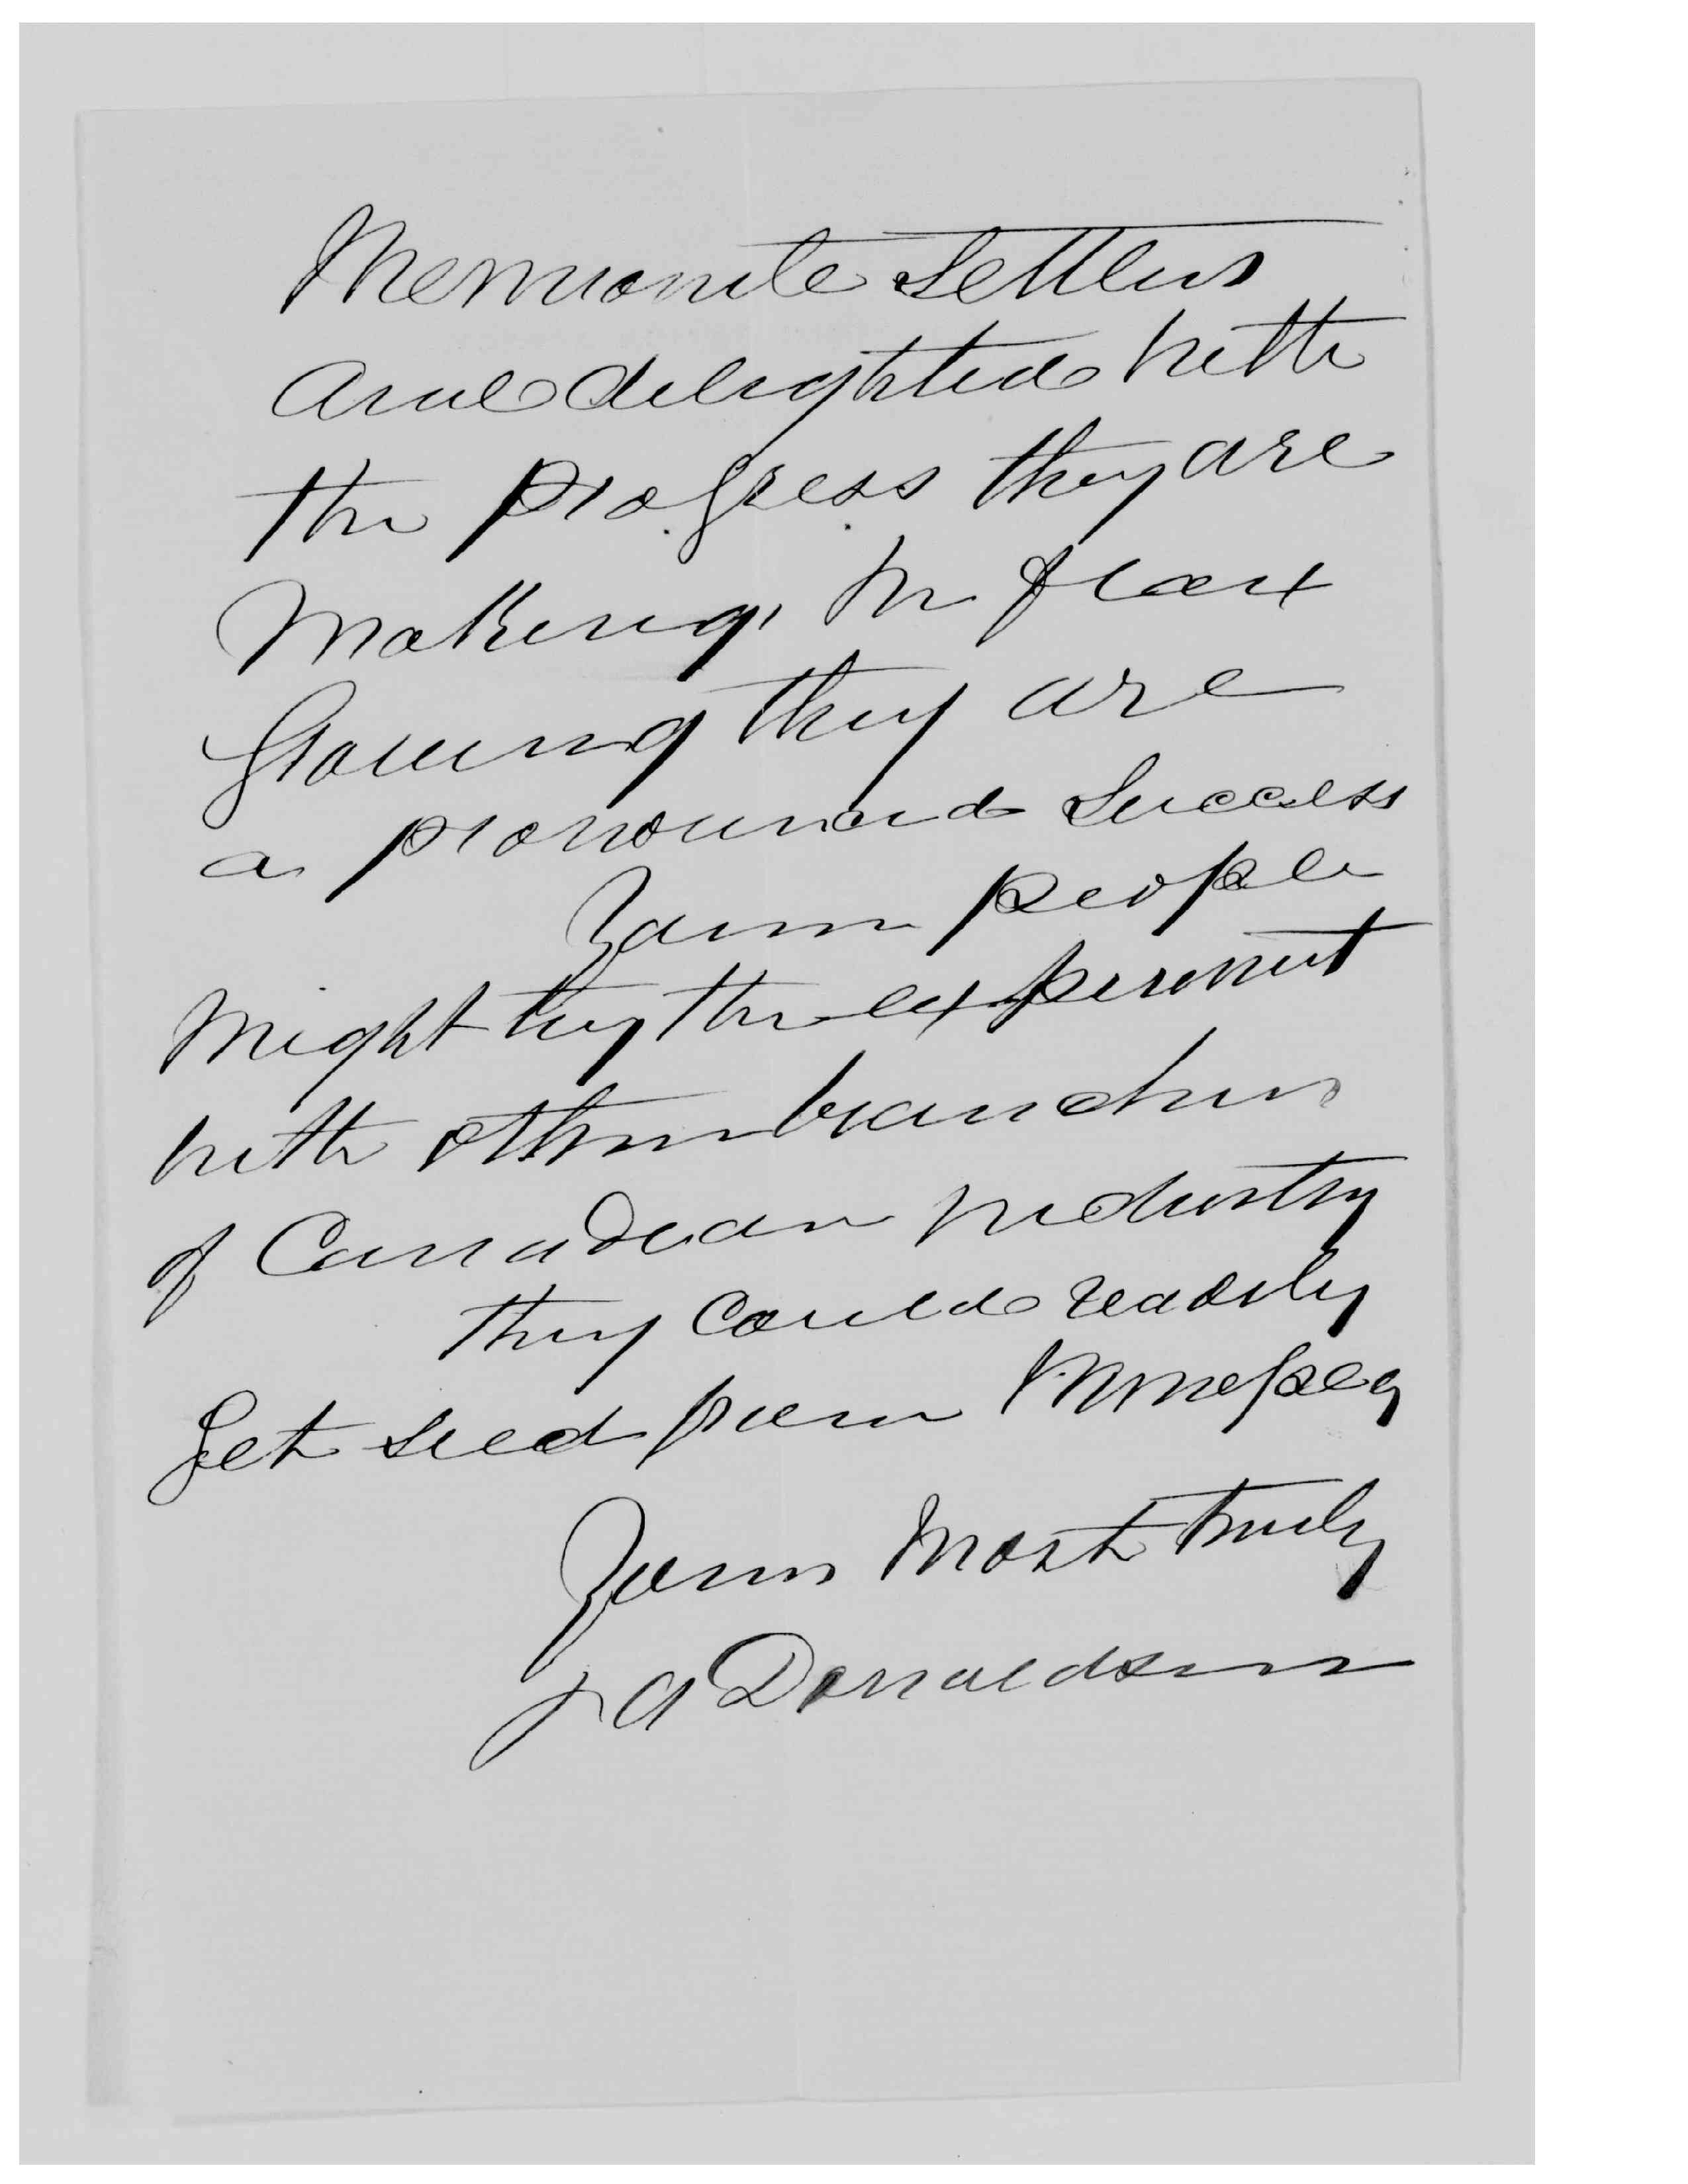 Mennonite Settlers
and delighted with
the progress they are
Making, In flax
Growing they are
a pronounced Success
Your people
Might try the experiment
with other branches
of Canadian industry
they could readily
Get seed from Winnepeg
Yours Most truly
J A Donaldson